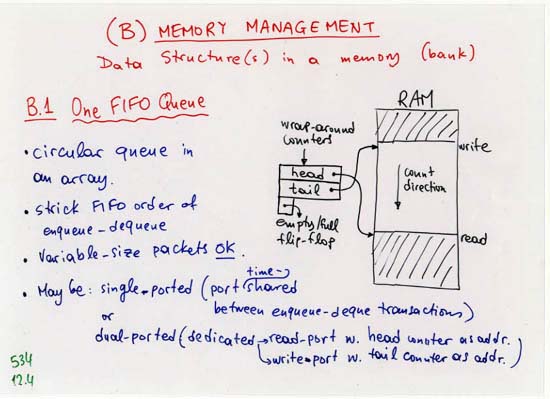 (B) MEMORY MANAGEMENT
Data Structure(s) in a memory (bank)
B.1 One FIFO Queue
RAM
wrap-around
counters
write
head
tail
count
direction
empty/full
flip-flop
read
• circular queue in
an array.
• strick FIFO order of
enqueue-dequeue
• Variable-size packets OK.
• May be: single-ported (port time-shared
between enqueue-deque transactions)
or
dual-ported (dedicated read-port w. head counter as addr.
write-port w. tail counter as addr.)
534
12.4